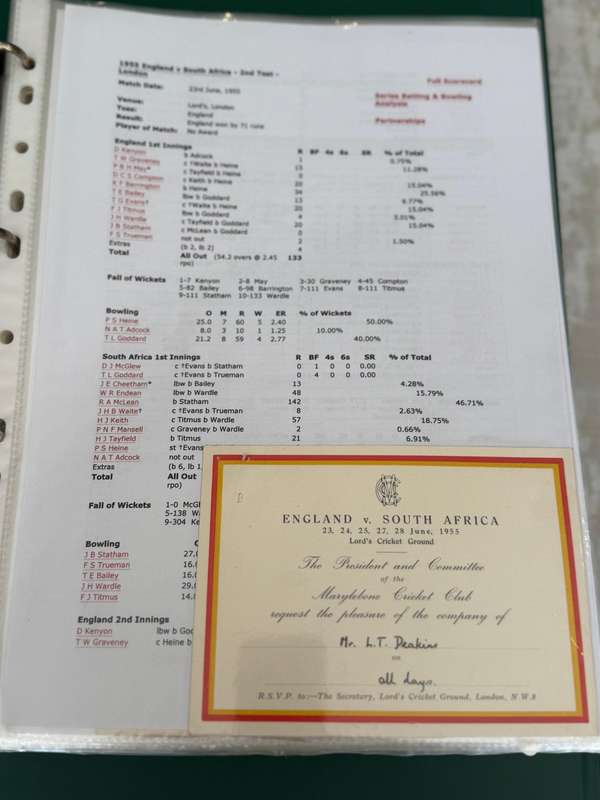 1955 England v South Africa - 2nd Test - London
Full Scorecard
Match Date: 23rd June, 1955
Series Batting & Bowling Analysis
Venue: Lord's, London
Toss: England
Result: England won by 71 runs
Partnerships
Player of Match: No Award
England 1st Innings R BF 4s 6s SR % of Total
D Kenyon b Adcock 1 0.75%
T W Graveney c †Waite b Heine 15 11.28%
P B H May* c Tayfield b Heine 0
D C S Compton c Keith b Heine 20 15.04%
K F Barrington b Heine 34 25.56%
T E Bailey lbw b Goddard 13 9.77%
T G Evans† c †Waite b Heine 20 15.04%
F J Titmus lbw b Goddard 4 3.01%
J H Wardle c Tayfield b Goddard 20 15.04%
J B Statham c McLean b Goddard 0
F S Trueman not out 2 1.50%
Extras (b 2, lb 2) 4
Total All Out (54.2 overs @ 2.45 rpo) 133
Fall of Wickets 1-7 Kenyon 2-8 May 3-30 Graveney 4-45 Compton
5-82 Bailey 6-98 Barrington 7-111 Evans 8-111 Titmus
9-111 Statham 10-133 Wardle
Bowling O M R W ER % of Wickets
P S Heine 25.0 7 60 5 2.40 50.00%
N A T Adcock 8.0 3 10 1 1.25 10.00%
T L Goddard 21.2 8 59 4 2.77 40.00%
South Africa 1st Innings R BF 4s 6s SR % of Total
D J McGlew c †Evans b Statham 0 1 0 0 0.00
T L Goddard c †Evans b Trueman 0 4 0 0 0.00
J E Cheetham* lbw b Bailey 13 4.28%
W R Endean lbw b Wardle 48 15.79%
R A McLean b Statham 142 46.71%
J H B Waite† c †Evans b Trueman 8 2.63%
H J Keith c Titmus b Wardle 57 18.75%
P N F Mansell c Graveney b Wardle 2 0.66%
H J Tayfield b Titmus 21 6.91%
P S Heine st †Evans
N A T Adcock not out
Extras (b 6, lb 1
Total All Out
rpo)
Fall of Wickets 1-0 McGl
5-138 W
9-304 Ke
Bowling
J B Statham 27.
F S Trueman 16.
T E Bailey 16.
J H Wardle 29.
F J Titmus 14.
England 2nd Innings
D Kenyon lbw b God
T W Graveney c Heine b
ENGLAND v. SOUTH AFRICA
23, 24, 25, 27, 28 June, 1955
Lord's Cricket Ground
The President and Committee
of the
Marylebone Cricket Club
request the pleasure of the company of
Mr. L.T. Deakins
on
all days.
R.S.V.P. to:—The Secretary, Lord's Cricket Ground, London, N.W.8